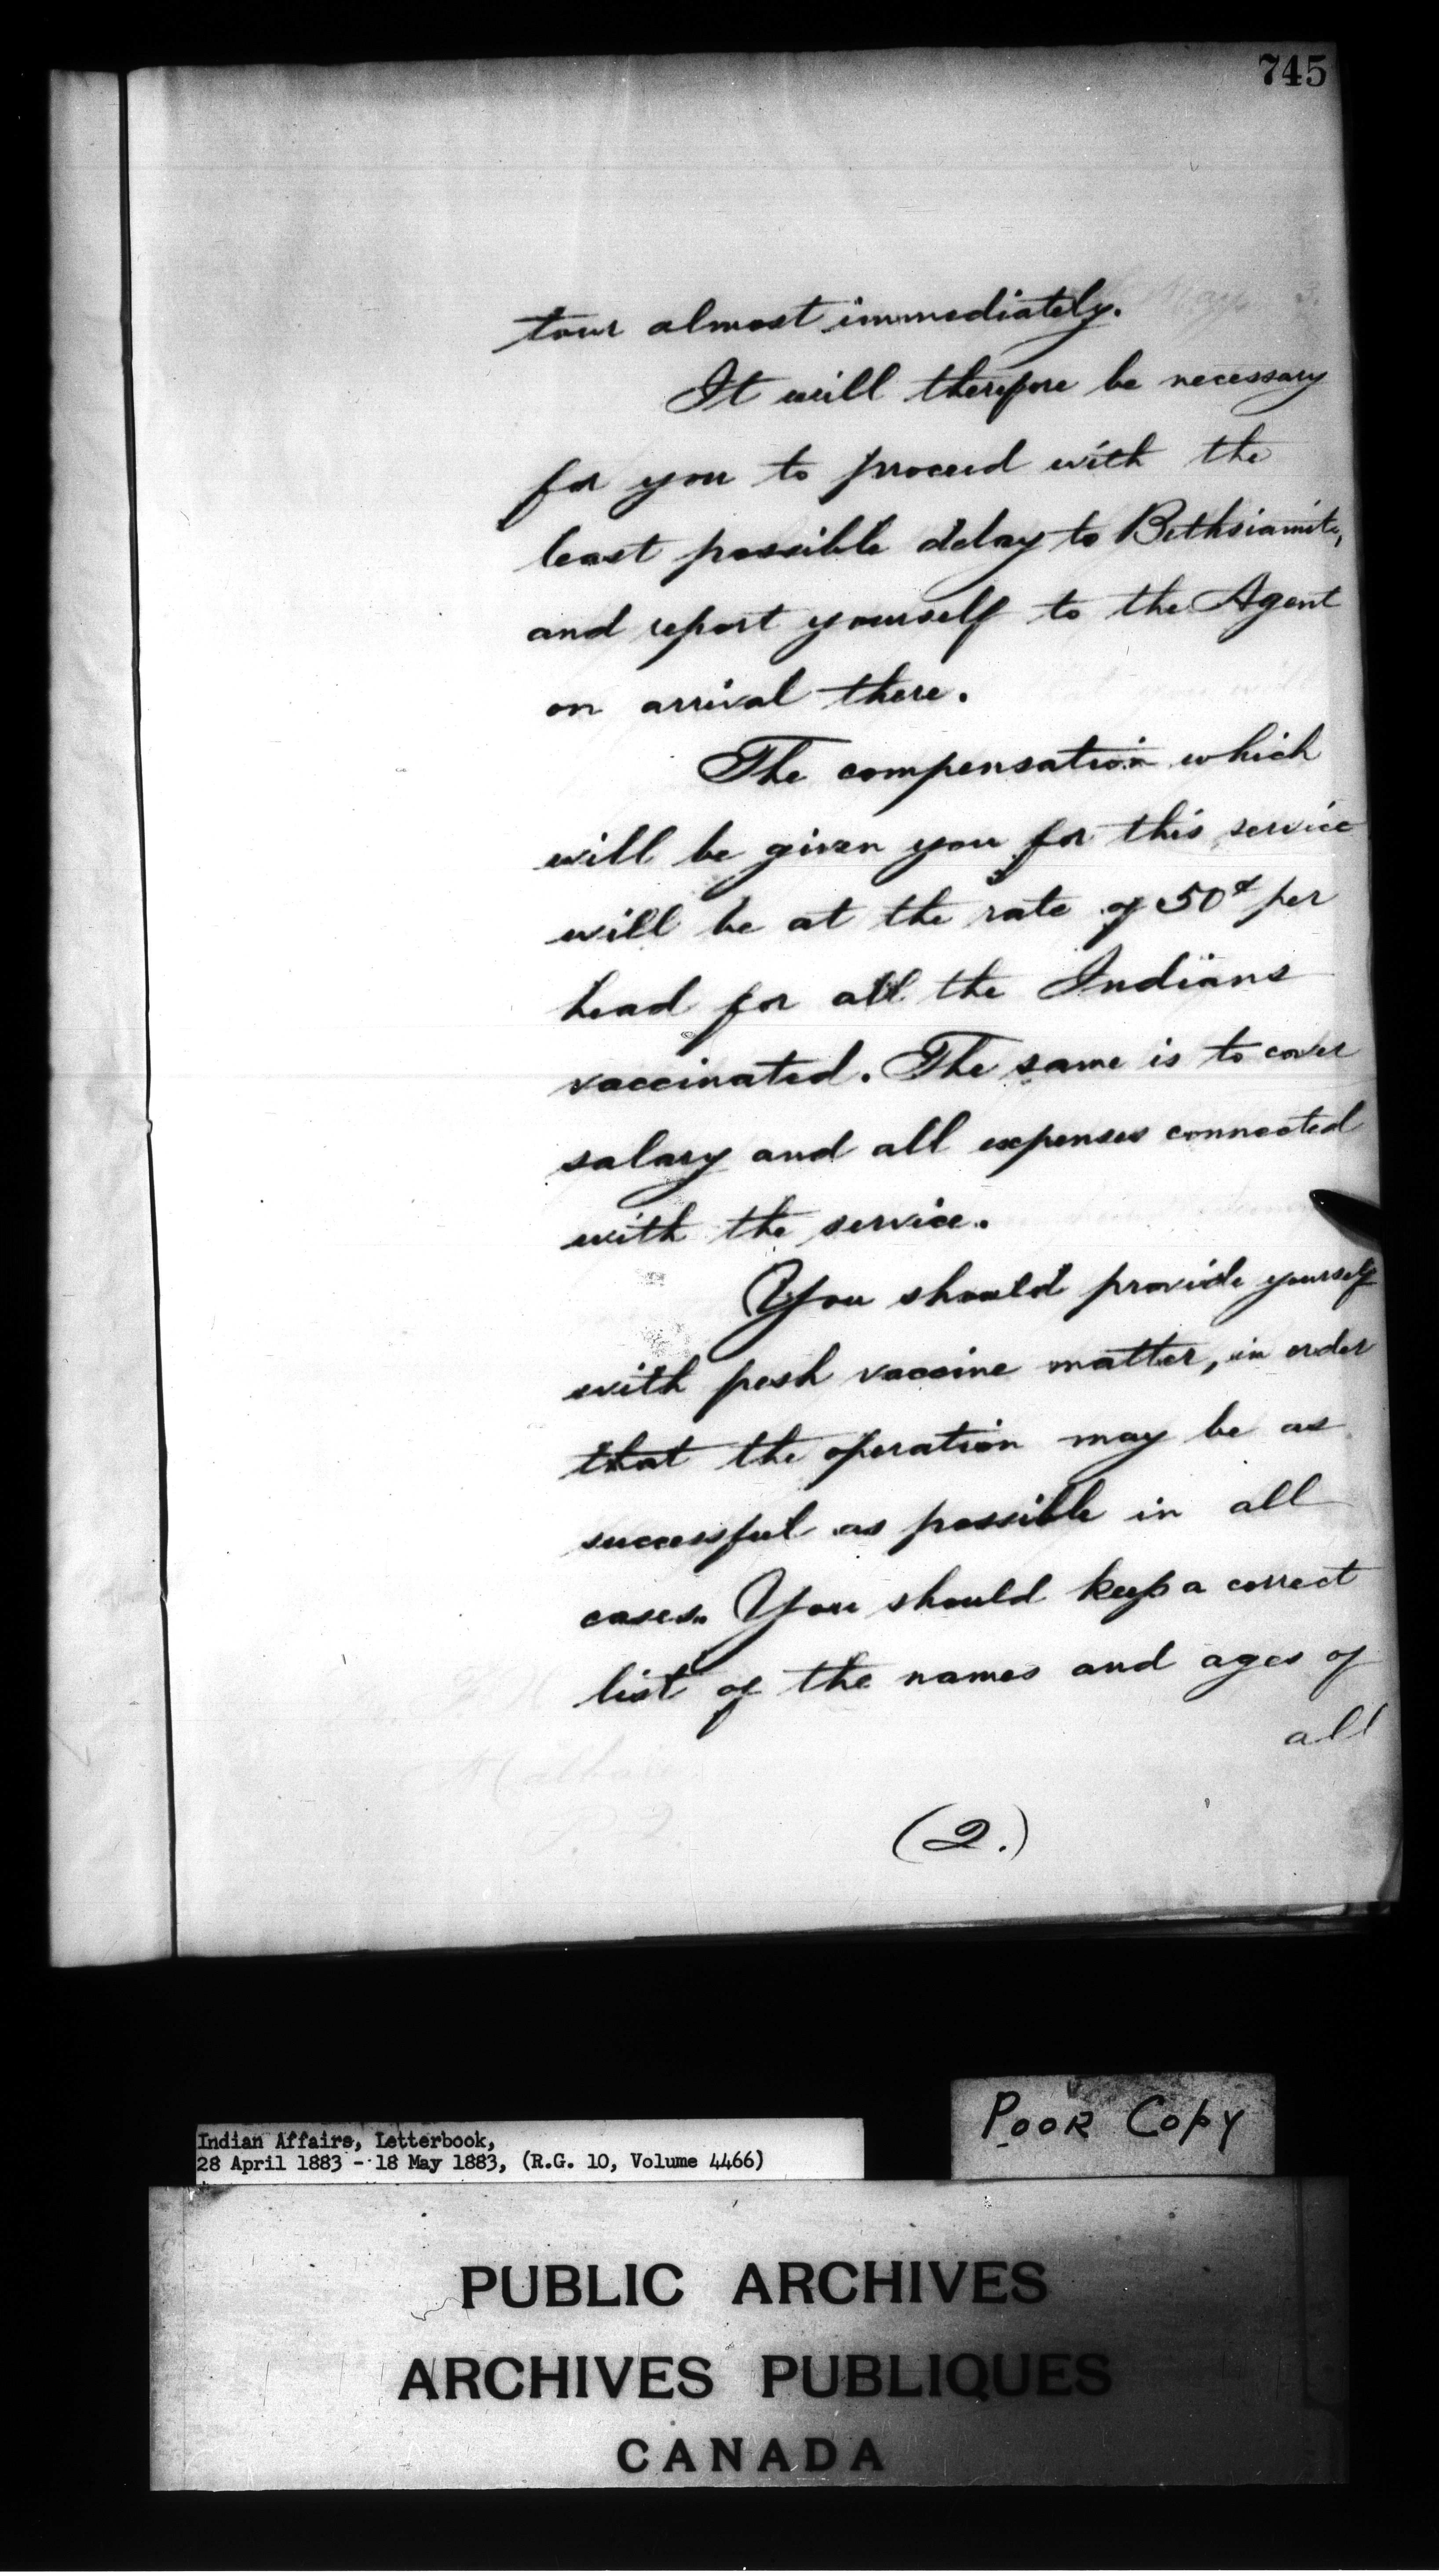 745
tour almost immediately.
It will therefore be necessary
for you to proceed with the
least possible delay to Bethsiamits,
and report yourself to the Agent
on arrival there.
The compensation which
will be given you for this service
will be at the rate of 50¢ per
head for all the Indians
vaccinated. The same is to cover
salary and all expenses connected
with the service.
You should provide yourself
with fresh vaccine matter, in order
that the operation may be as
successful as possible in all
cases. You should keep a correct
list of the names and ages of
all
(2.)
Poor Copy
Indian Affairs, Letterbook,
28 April 1883 - 18 May 1883, (R.G. 10, Volume 4466)
PUBLIC ARCHIVES
ARCHIVES PUBLIQUES
CANADA